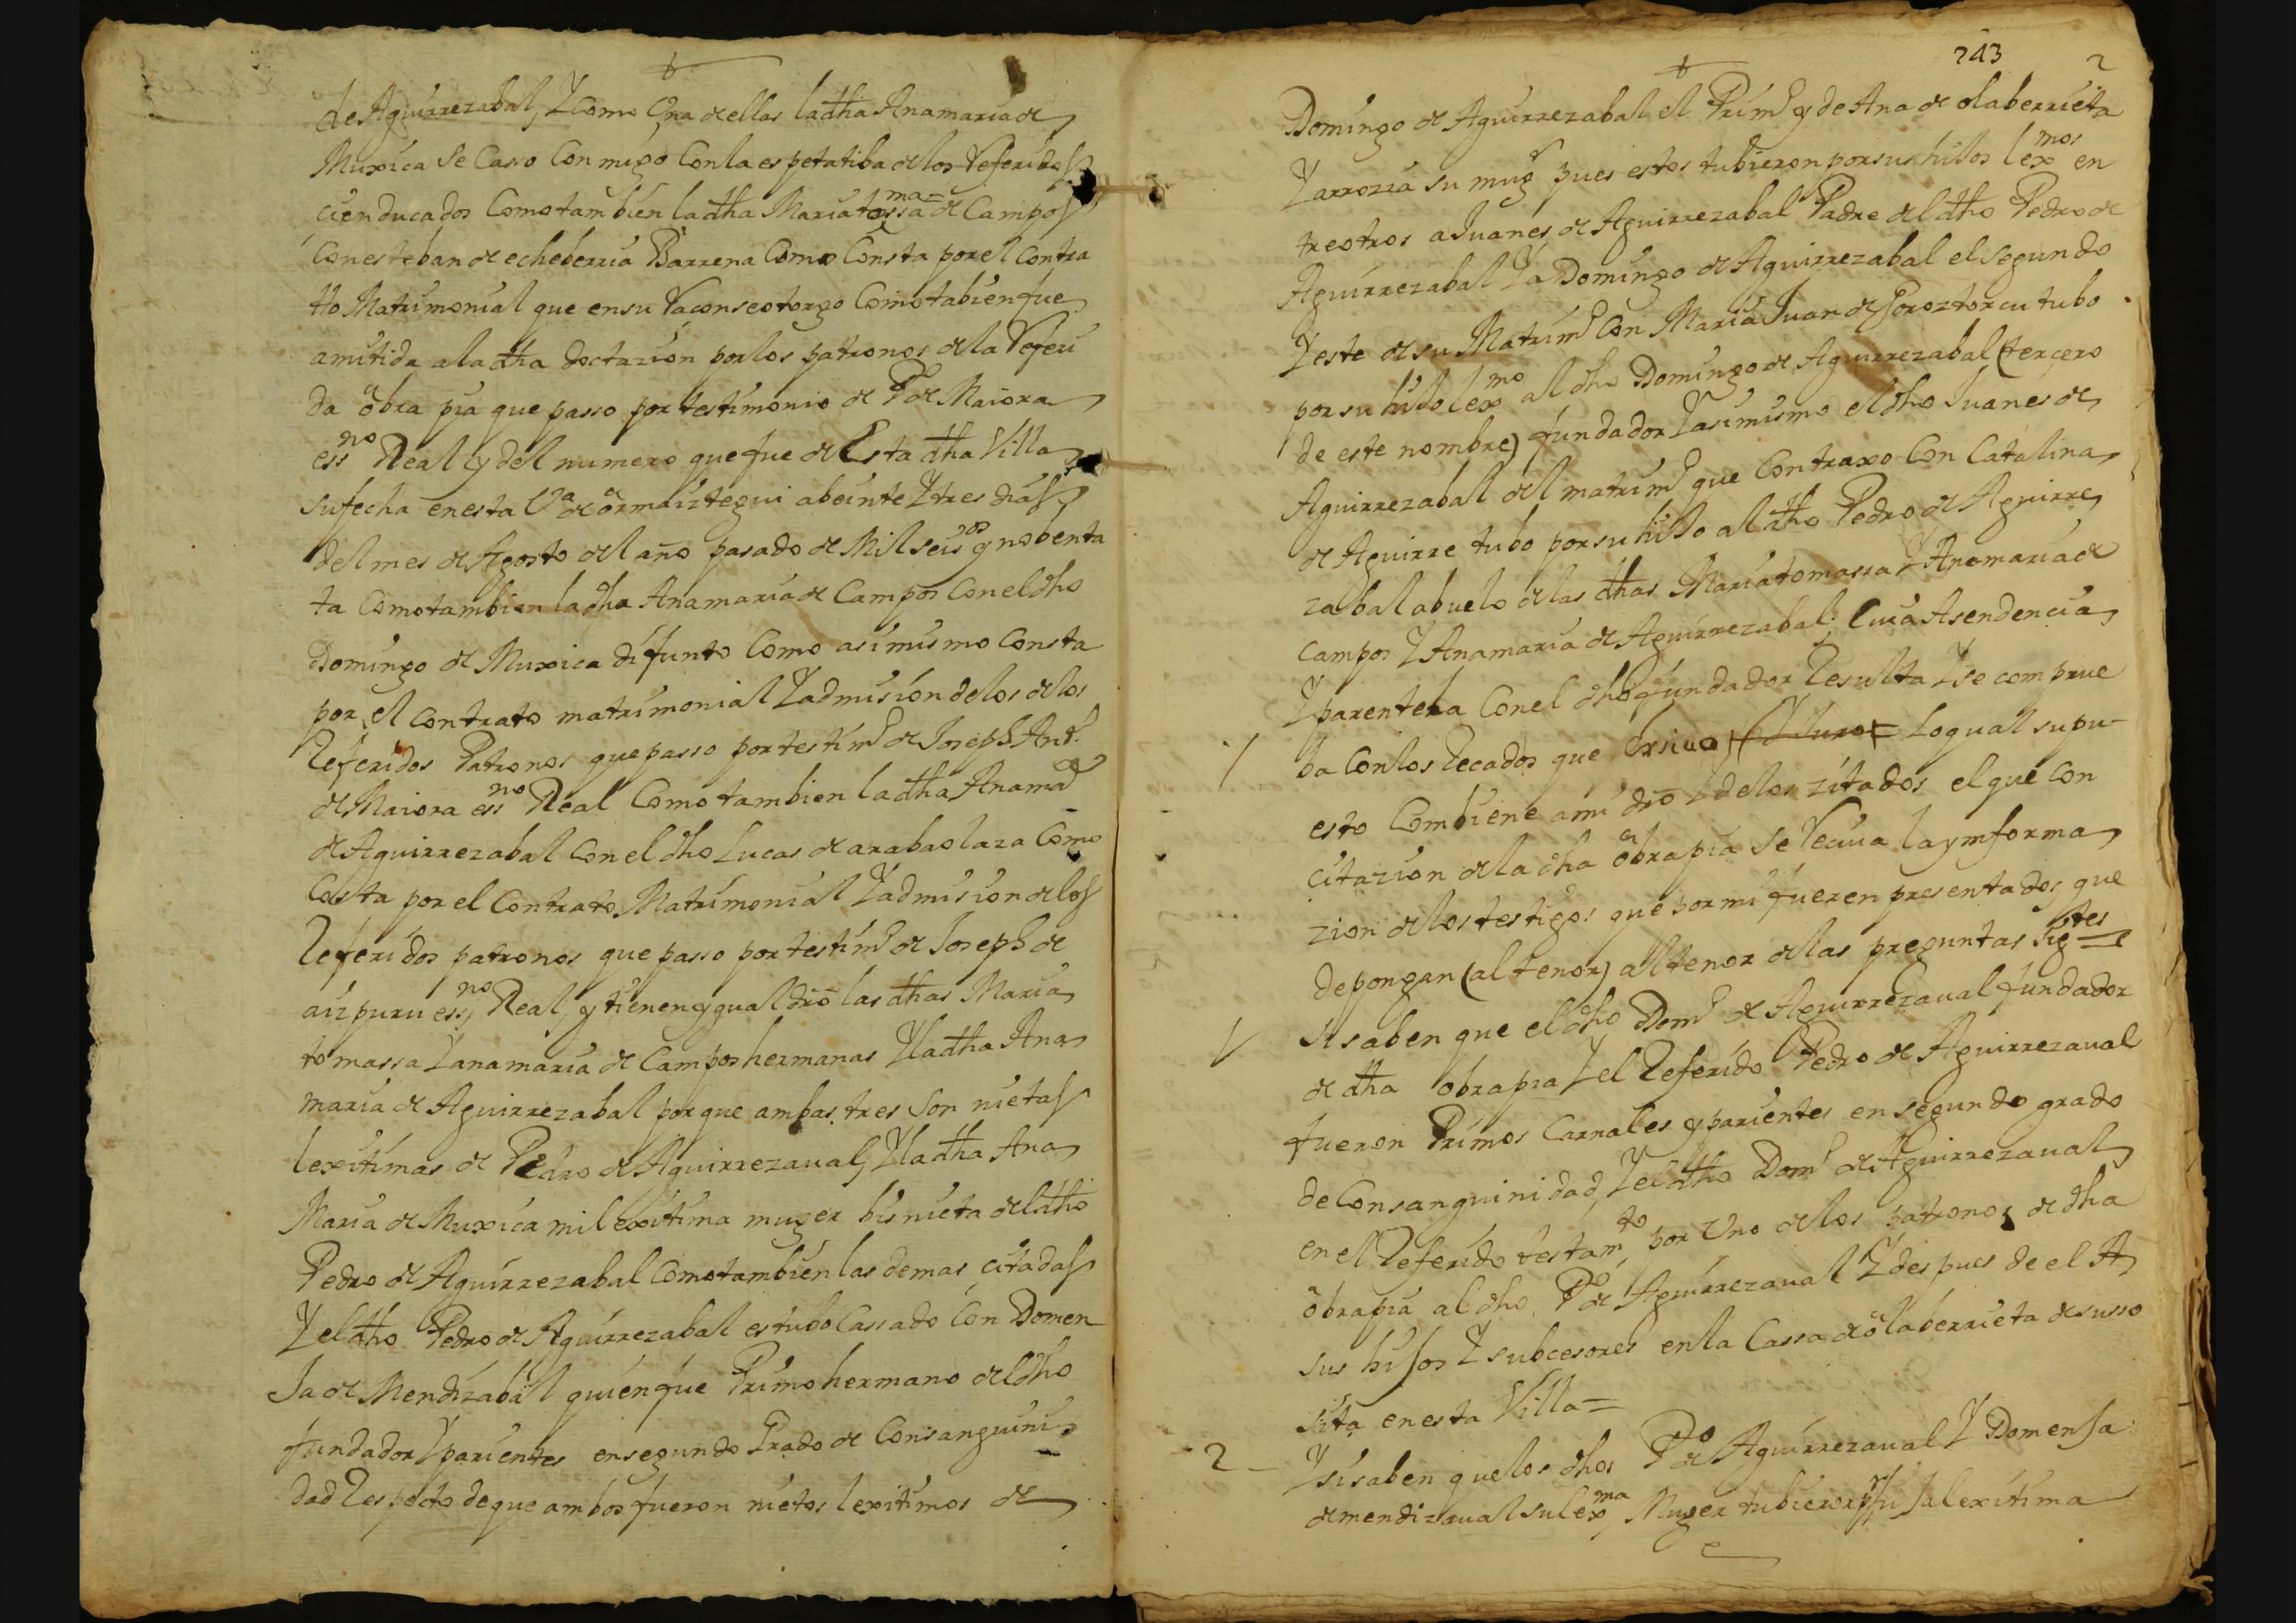 de Aguirrezabal, Y como Una de ellas la dha Anamaria de
Muxica Se Caso Con migo Con la espetatiba de los Referidos
çien ducados Como tambien la dha Mariatomassa de Campos
Con esteban de echeberria Barrena Como Consta por el Contra
tto Matrimonial que en su Raçon se otorgo Como tabien fue
amitida a la dha doctazion por los patronos de la Referi
da obra pia que passo por testimonio de Po de Maiora
essno Real y del numero que fue de Esta dha Villa
su fecha en esta Va de ormaiztegui a beinte Y tres dias
del mes de Agosto del año pasado de Mil seisos y nobenta
ta Como tambien la dha Anamaria de Campos Con el dho
Domingo de Muxica difunto Como asimismo Consta
por el Contrato matrimonial Y admision de los de los
Referidos Patronos que passo por testimo de Joseph Anto
de Maiora essno Real Como tambien la dha Anama
de Aguirrezabal Con el dho Lucas de arabaolaza Como
Costa por el Contrato Matrimonial Y admision de los
Referidos patronos que passo por testimo de Joseph de
aizpuru essno Real, y tienen ygual dro las dhas Maria
tomassa Y anamaria de Campos hermanas Y la dha Ana
maria de Aguirrezabal por que ambas tres Son nietas
lexitimas de Pedro de Aguirrezaual, Y la dha Ana
Maria de Muxica mi lexitima muger bisnieta del dho
Pedro de Aguirrezabal Como tambien las demas çitadas
Y el dho Pedro de Aguirrezabal estubo Cassado Con Domen
Ja de Mendizabal quien fue Primo hermano del dho
fundador Y parientes en segundo Grado de Consanguini
dad Respecto de que ambos fueron nietos lexitimos de
243 2
Domingo de Aguirrezabal el Primo y de Ana de olaberrieta
Y arrozia su mugr pues estos tubieron por sus hiJos lexmos en
tre otros a Juanes de Aguirrezabal Padre del dho Pedro de
Aguirrezabal Y a Domingo de Aguirrezabal el Segundo
Y este de su Matrimo Con Maria Juan de Goroztorcu tubo
por su hiJo lexmo al dho Domingo de Aguirrezabal (terçero
de este nombre) fundador Y asimismo el dho Juanes de
Aguirrezabal del matrimo que Contraxo Con Catalina
de Aguirre tubo por su hiJo al dho Pedro de Aguirre
zabal abuelo de las dhas Mariatomassa Y Anamaria de
Campos Y Anamaria de Aguirrezabal: Cuia Asendencia
Y parentela Con el dho fundador Resulta Y se comprue
ba Con los Recados que Lo qual supu-
esto Combiene a mi dro Y de los zitados el que Con
citazion de la dha obra pia Se Reciua la ymforma
zion de los testigos que por mi fueren presentados, que
depongan (al tenor) al tenor de las preguntas sigtes
1 Si saben que el dho Domo de Aguirrezaual fundador
de dha obra pia Y el Referido Pedro de Aguirrezaual
fueron Primos Carnales y parientes en segundo grado
de Consanguinidad, Y el dho Domo de Aguirrezaual
en el Referido testamto por Uno de los patronos de dha
obra pia al dho Po de Aguirrezaual Y despues de el A
sus hiJos Y subcesores en la Cassa de olaberrieta de susso
sita en esta Villa=
2 Y si saben que los dhos Po de Aguirrezaual Y DomenJa
de mendizaual su lexma Muger tubieron lexitima